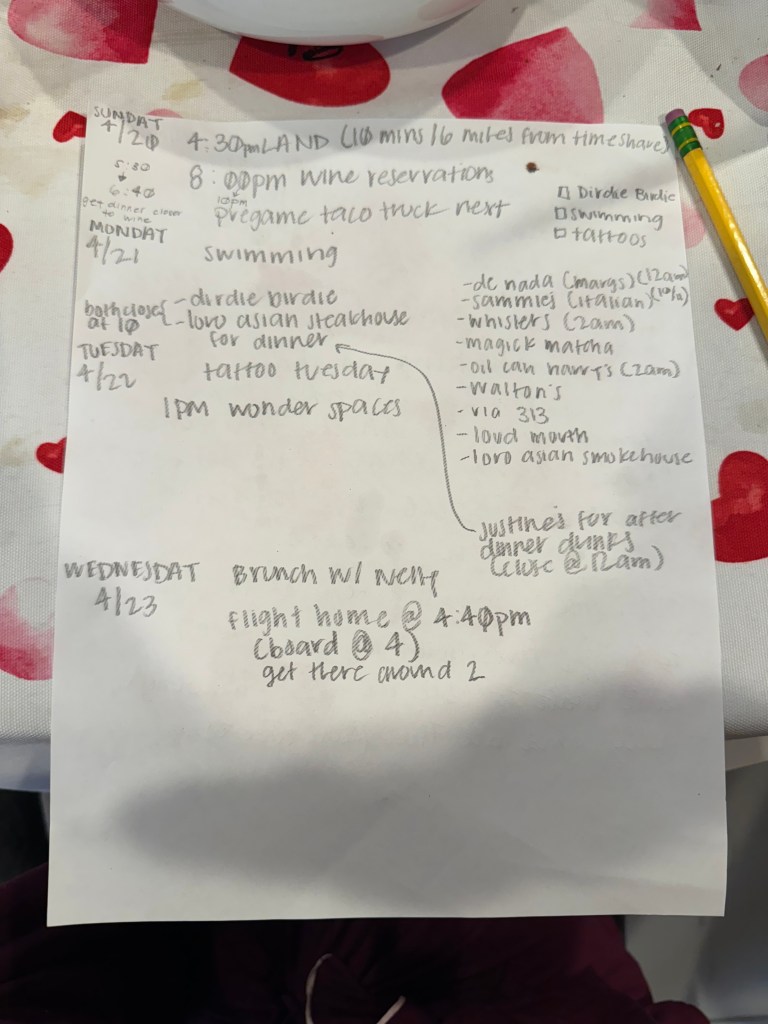 SUNDAY
4/20
4:30pm LAND (10 mins/6 miles from timeshare)
5:30
6:40
get dinner closer
to wine
8:00pm wine reservations
10pm
pregame taco truck next
□ Dirdie Birdie
□ swimming
□ tattoos
MONDAY
4/21
swimming
both close
at 10
- dirdie birdie
- loro asian steakhouse
for dinner
TUESDAY
4/22
tattoo tuesday
1PM wonder spaces
- de nada (margs) (12am)
- sammies (italian)
- whislers (2am)
- magick matcha
- oil can harry's (2am)
- walton's
- via 313
- loud mouth
- loro asian smokehouse
justines for after
dinner drinks
(close @ 12am)
WEDNESDAY
4/23
Brunch w/ Nelly
flight home @ 4:40pm
(board @ 4)
get there around 2